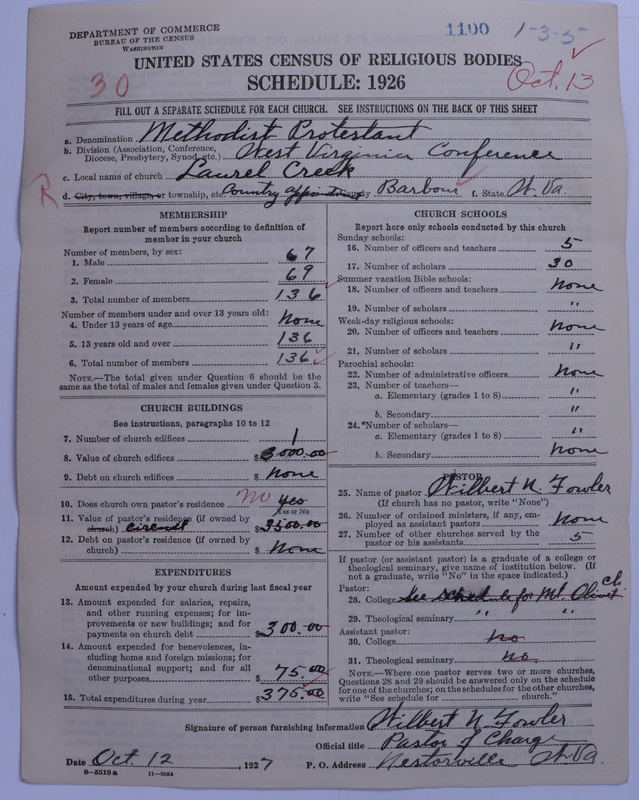 DEPARTMENT OF COMMERCE
BUREAU OF THE CENSUS
WASHINGTON
1100
1-3-5
UNITED STATES CENSUS OF RELIGIOUS BODIES
30
SCHEDULE: 1926
Oct. 13
FILL OUT A SEPARATE SCHEDULE FOR EACH CHURCH. SEE INSTRUCTIONS ON THE BACK OF THIS SHEET
a. Denomination Methodist Protestant
b. Division (Association, Conference, Diocese, Presbytery, Synod, etc.) West Virginia Conference
c. Local name of church Laurel Creek
R
d. City, town, village, or township, etc. Country County Barbour f. State W. Va.
MEMBERSHIP
Report number of members according to definition of
member in your church
Number of members, by sex:
1. Male 67
2. Female 69
3. Total number of members 136
Number of members under and over 13 years old:
4. Under 13 years of age None
5. 13 years old and over 136
6. Total number of members 136
NOTE.—The total given under Question 6 should be the
same as the total of males and females given under Question 3.
CHURCH BUILDINGS
See instructions, paragraphs 10 to 12
7. Number of church edifices 1
8. Value of church edifices $3000.00
9. Debt on church edifices $ None
10. Does church own pastor's residence? no yes
Yes or No
11. Value of pastor's residence (if owned by
church) circuit $3500.00
12. Debt on pastor's residence (if owned by
church) $ None
EXPENDITURES
Amount expended by your church during last fiscal year
13. Amount expended for salaries, repairs,
and other running expenses; for im-
provements or new buildings; and for
payments on church debt $300.00
14. Amount expended for benevolences, in-
cluding home and foreign missions; for
denominational support; and for all
other purposes $75.00
15. Total expenditures during year $375.00
CHURCH SCHOOLS
Report here only schools conducted by this church
Sunday schools:
16. Number of officers and teachers 5
17. Number of scholars 30
Summer vacation Bible schools:
18. Number of officers and teachers None
19. Number of scholars "
Week-day religious schools:
20. Number of officers and teachers None
21. Number of scholars "
Parochial schools:
22. Number of administrative officers None
23. Number of teachers—
a. Elementary (grades 1 to 8) "
b. Secondary "
24. Number of scholars—
a. Elementary (grades 1 to 8) "
b. Secondary None
PASTOR
25. Name of pastor Wilbert N. Fowler
(If church has no pastor, write "None")
26. Number of ordained ministers, if any, em-
ployed as assistant pastors None
27. Number of other churches served by the
pastor or his assistants 5
If pastor (or assistant pastor) is a graduate of a college or
theological seminary, give name of institution below. (If
not a graduate, write "No" in the space indicated.)
Pastor:
28. College See schedule for Mt. Olivet Ch.
29. Theological seminary " "
Assistant pastor:
30. College no
31. Theological seminary no
NOTE.—Where one pastor serves two or more churches,
Questions 28 and 29 should be answered only on the schedule
for one of the churches; on the schedules for the other churches,
write "See schedule for church."
Signature of person furnishing information Wilbert N. Fowler
Official title Pastor of Charge
Date Oct. 12, 1927 P. O. Address Nestorville W. Va.
8—5518a 11—9054